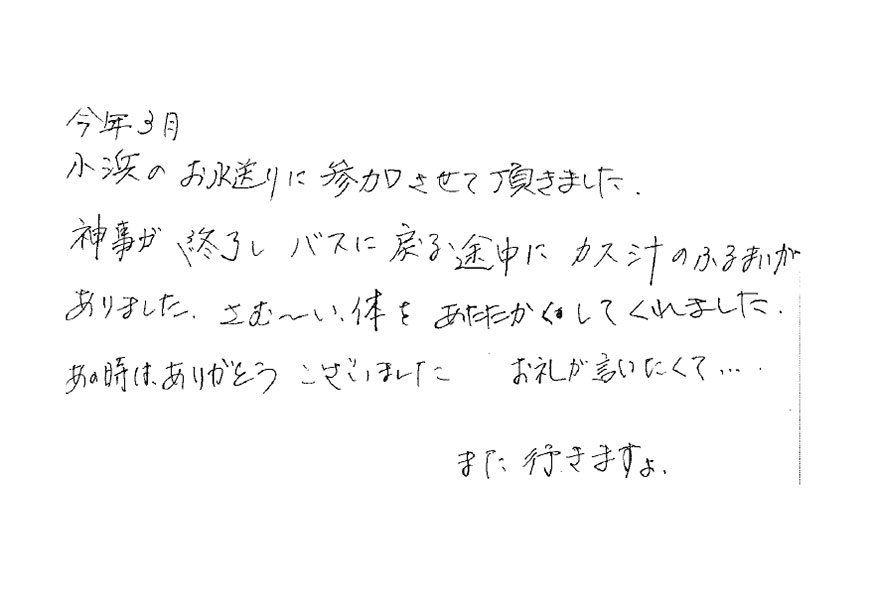 今年3月
小浜のお水送りに参加させて頂きました.
神事が終了し バスに戻る途中に カス汁のふるまいが
ありました. さむ〜い、体を あたたかくしてくれました.
あの時は、ありがとう ございました お礼が言いたくて….
また 行きますよ.